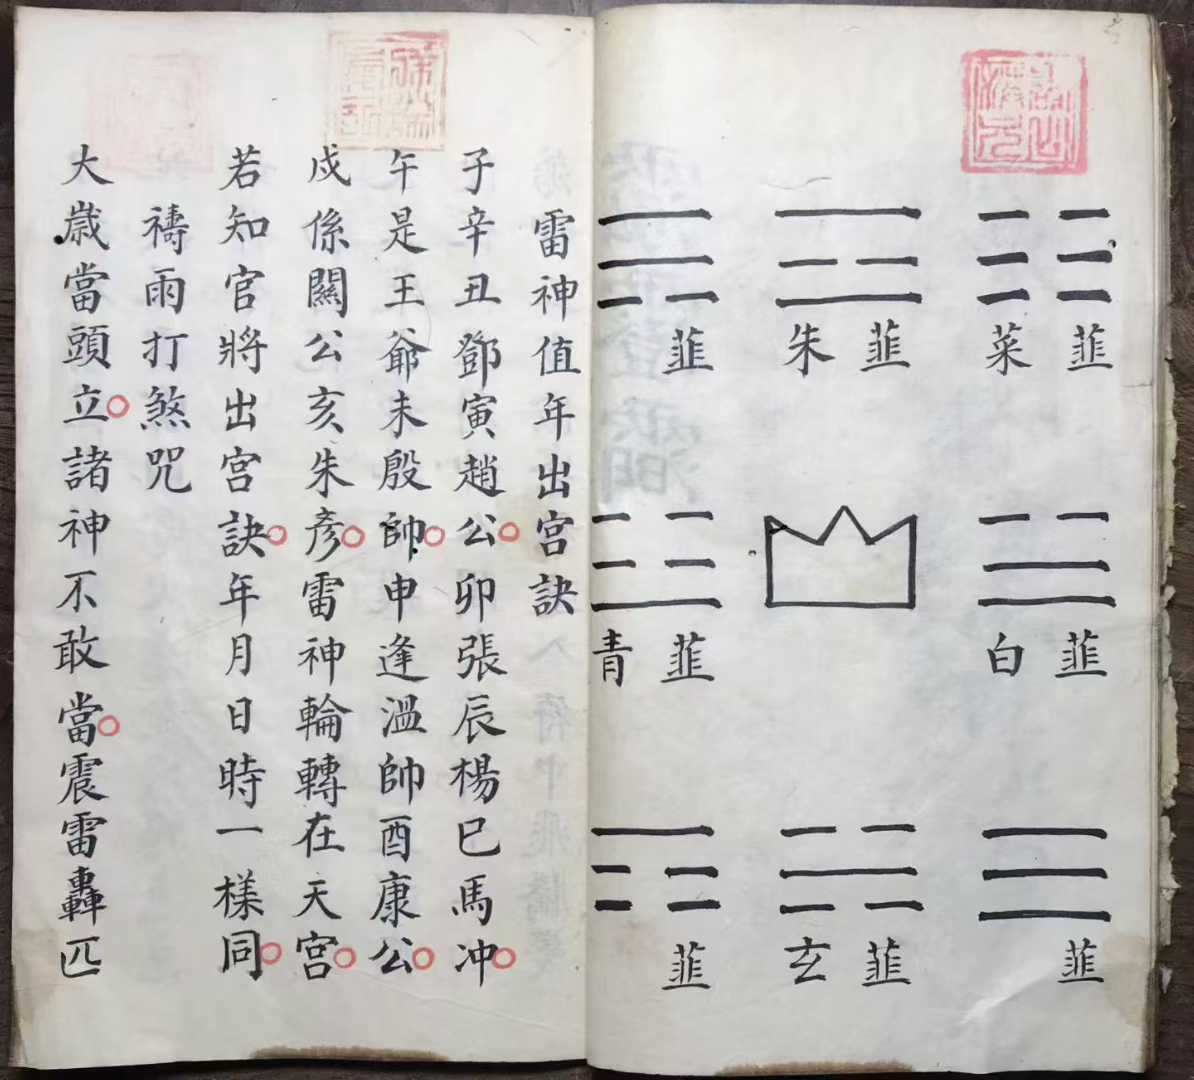 韮菜
韮朱
韮
韮白
韮青
韮
韮玄
韮
雷神值年出宫訣
子辛丑鄧寅趙公。卯張辰楊巳馬冲。
午是王爺未殷帥。申逢溫帥酉康公。
戍係關公亥朱彥。雷神輪轉在天宫。
若知官將出宫訣。年月日時一樣同。
禱雨打煞咒
大歲當頭立。諸神不敢當。震雷轟匹